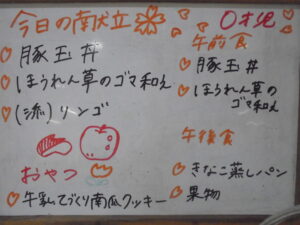 今日の献立
豚玉丼
ほうれん草のゴマ和え
(流)リンゴ
おやつ
牛乳、てづくり南瓜クッキー
0才児
午前食
豚玉丼
ほうれん草の
ゴマ和え
午後食
きなこ蒸しパン
果物